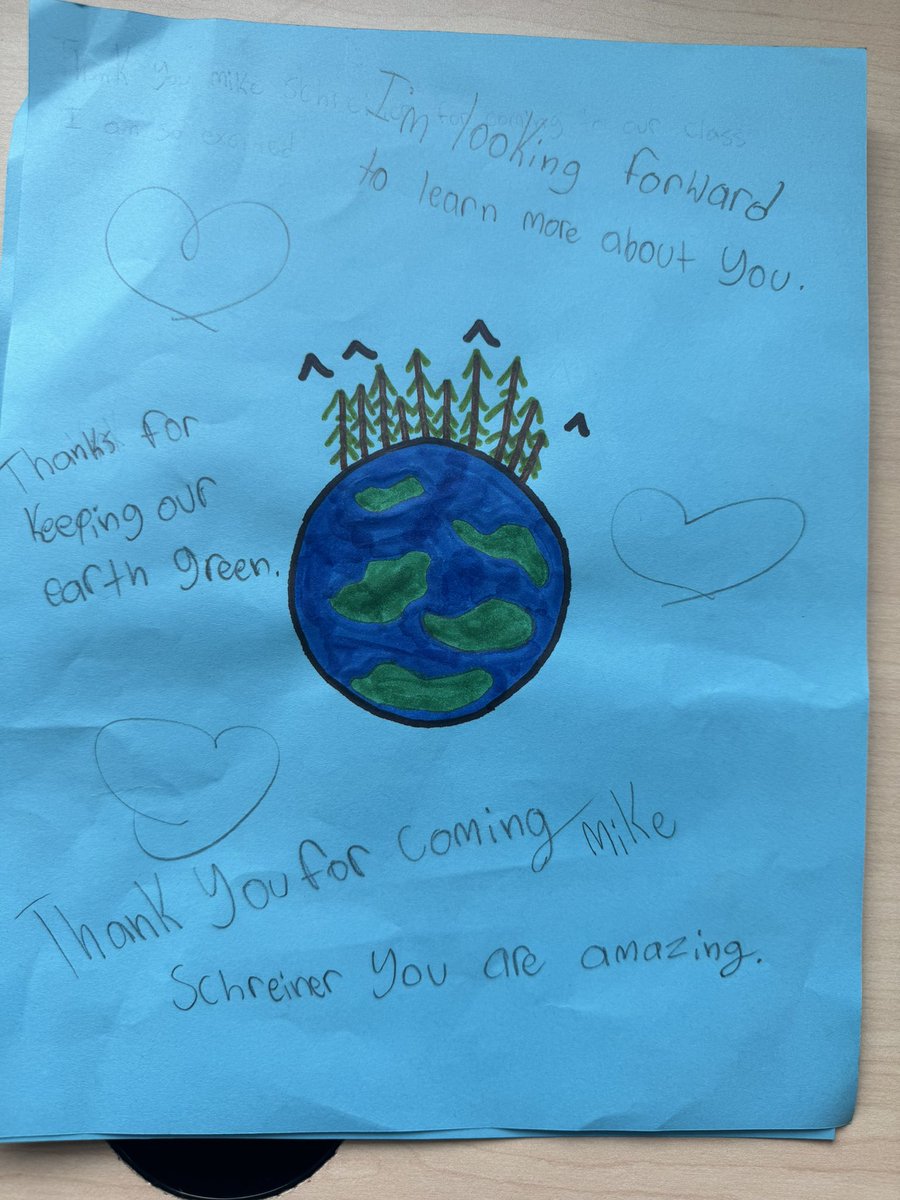 Thank you mike Schreiner for coming to our class
I am so
I'm looking forward
to learn more about you.
Thanks for
keeping our
earth green.
Thank you for coming mike
Schreiner you are amazing.